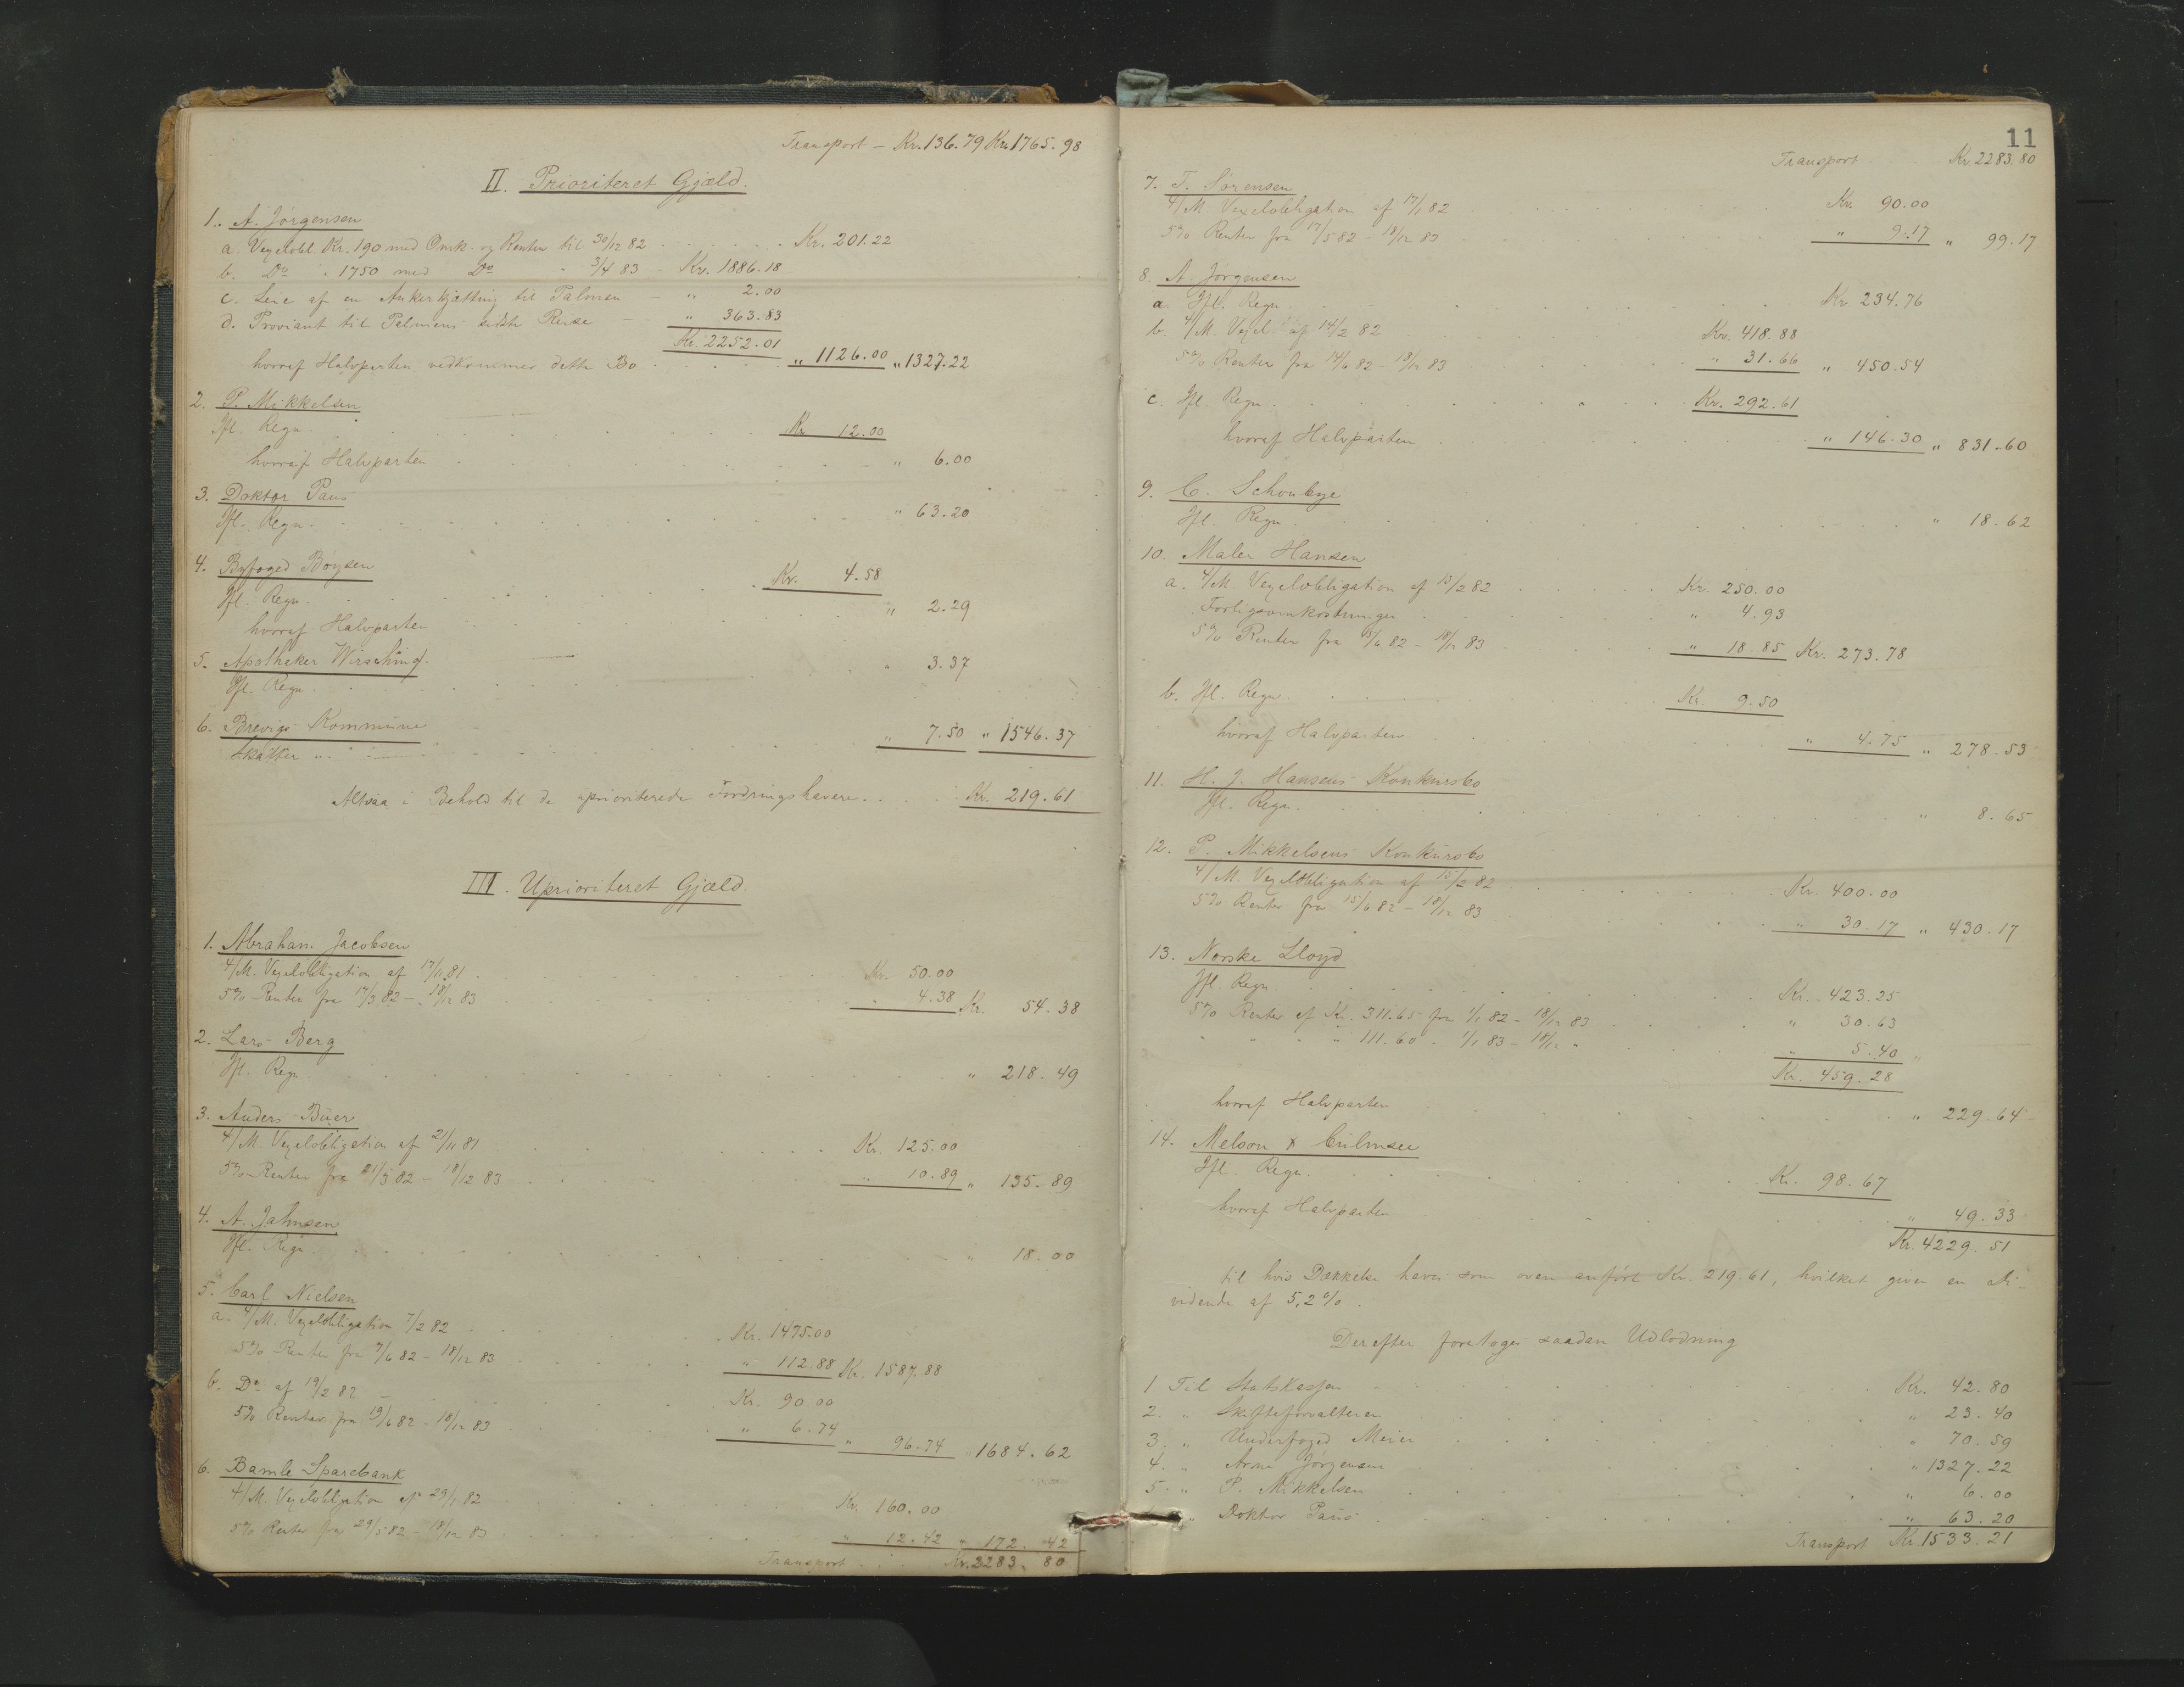 Transport – Kr. 136.79 Kr. 1765.98
II. Prioriteret Gjæld.
1. A. Jörgensen
a. Vexelobl. Kr. 190 med Omk. og Renter til 30/12 82 Kr. 201.22
b. Do " 1750 med Do " 3/4 83 Kr. 1886.18
c. Leie af en Ankerkjætting til Palmen — " 2.00
d. Proviant til Palmens sidste Reise — " 363.83
Kr. 2252.01
hvoraf Halvparten vedkommer dette Bo " 1126.00 " 1327.22
2. P. Mikkelsen
Ifl. Regn. Kr. 12.00
hvoraf Halvparten " 6.00
3. Doktor Paus
Ifl. Regn. " 63.20
4. Byfoged Böysen
Ifl. Regn. Kr. 4.58
hvoraf Halvparten " 2.29
5. Apotheker Wirsching.
Ifl. Regn. " 3.37
6. Brevigs Kommune
Skatter " 7.50 " 1546.37
Altsaa i Behold til de uprioriterede Fordringshavere Kr. 219.61
III. Uprioriteret Gjæld.
1. Abraham Jacobsen
4/M. Vexelobligation af 17/11 81 Kr. 50.00
5% Renter fra 17/3 82 – 18/12 83 " 4.38 Kr. 54.38
2. Lars Berg
Ifl. Regn. " 218.49
3. Anders Büer
4/M. Vexelobligation af 21/11 81 Kr. 125.00
5% Renter fra 21/3 82 – 18/12 83 " 10.89 " 135.89
4. A. Jahnsen
Ifl. Regn. " 18.00
5. Carl Nielsen
a. 4/M. Vexelobligation 7/2 82 Kr. 1475.00
5% Renter fra 7/6 82 – 18/12 83 " 112.88 Kr. 1587.88
b. Do af 19/2 82 Kr. 90.00
5% Renter fra 19/6 82 – 18/12 83 " 6.74 " 96.74 " 1684.62
6. Bamle Sparebank
4/M. Vexelobligation af 29/1 82 Kr. 160.00
5% Renter fra 29/5 82 – 18/12 83 " 12.42 " 172.42
Transport Kr. 2283.80
11
Transport Kr. 2283.80
7. T. Sørensen
4/M. Vexelobligation af 17/1 82 Kr. 90.00
5% Renter fra 17/5 82 – 18/12 83 " 9.17 " 99.17
8. A. Jørgensen
a. Ifl. Regn. Kr. 234.76
b. 4/M. Vexel af 14/2 82 Kr. 418.88
5% Renter fra 14/6 82 – 18/12 83 " 31.66 " 450.54
c. Ifl. Regn. Kr. 292.61
hvoraf Halvparten " 146.30 " 831.60
9. C. Schoubye
Ifl. Regn. " 18.62
10. Maler Hansen
a. 4/M. Vexelobligation af 15/2 82 Kr. 250.00
Forligsomkostninger " 4.93
5% Renter fra 15/6 82 – 18/12 83 " 18.85 Kr. 273.78
b. Ifl. Regn. Kr. 9.50
hvoraf Halvparten " 4.75 " 278.53
11. H. J. Hansens Konkursbo
Ifl. Regn. " 8.65
12. P. Mikkelsens Konkursbo
4/M. Vexelobligation af 15/2 82 Kr. 400.00
5% Renter fra 15/6 82 – 18/12 83 " 30.17 " 430.17
13. Norske Lloyd
Ifl. Regn. Kr. 423.25
5% Renter af Kr. 311.65 fra 1/1 82 – 18/12 83 " 30.63
" " " " 111.60 " 1/1 83 – 18/12 " " 5.40
Kr. 459.28
hvoraf Halvparten " 229.64
14. Melsom &
Ifl. Regn. Kr. 98.67
hvoraf Halvparten " 49.33
Kr. 4229.51
til hvis Dækkelse haves som oven anført Kr. 219.61, hvilket giver en Di-
vidende af 5,2%.
Derefter foretoges saadan Udlodning
1 Til Statskassen Kr. 42.80
2. " Skifteforvalteren " 23.40
3. " Underfoged Meier " 70.59
4. " Arne Jørgensen " 1327.22
5. " P. Mikkelsen " 6.00
" Doktor Paus " 63.20
Transport Kr. 1533.21